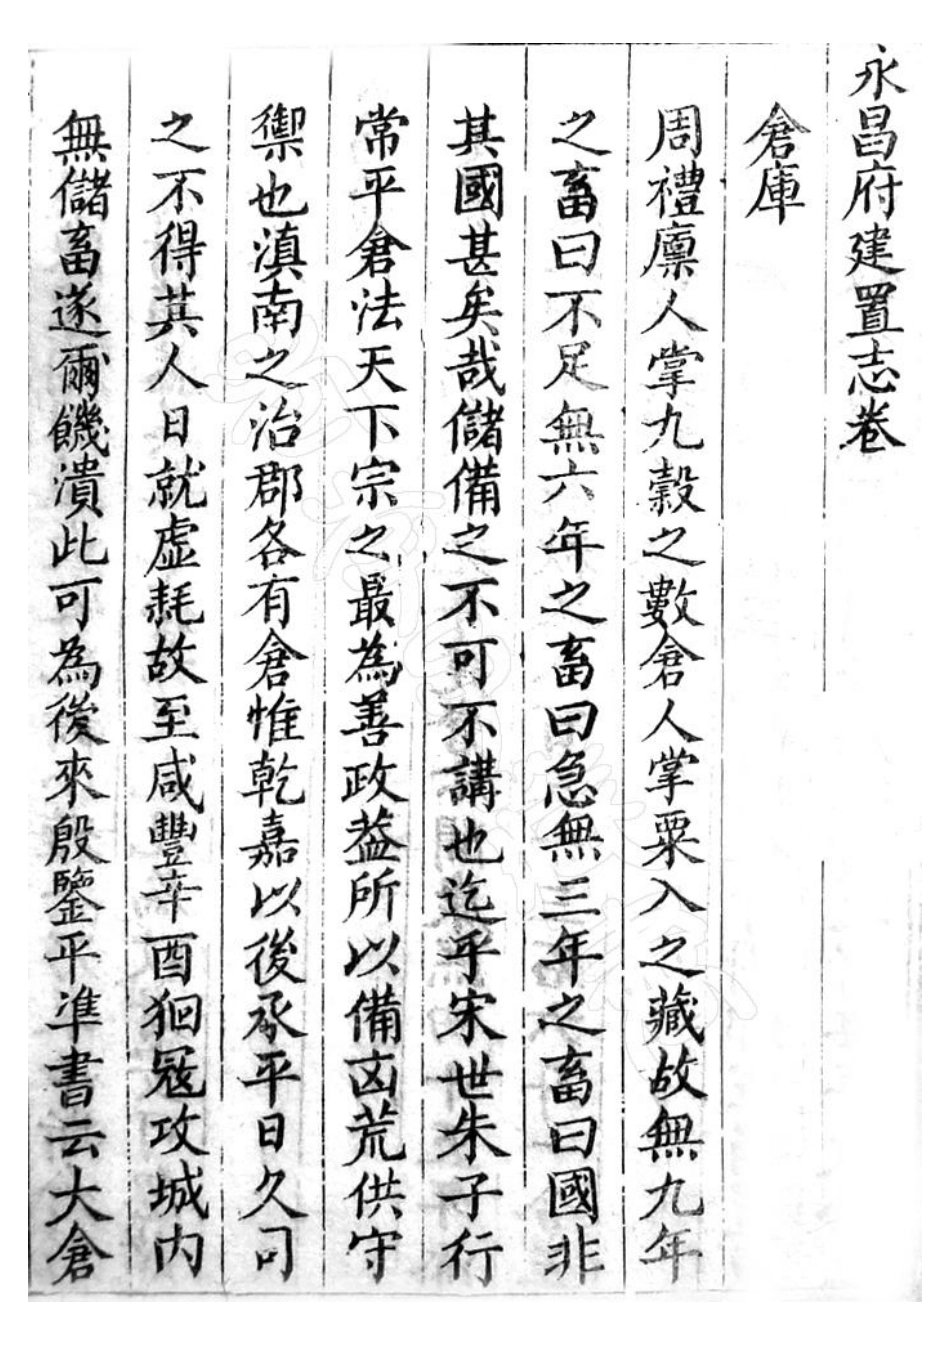 永昌府建置志卷
倉庫
周禮廩人掌九穀之數倉人掌粟入之藏故無九年
之畜曰不足無六年之畜曰急無三年之畜曰國非
其國甚矣哉儲備之不可不講也迄乎宋世朱子行
常平倉法天下宗之最為善政葢所以備凶荒供守
禦也滇南之治郡各有倉惟乾嘉以後承平日久司
之不得其人日就虛耗故至咸豐辛酉狪冦攻城内
無儲畜遂爾饑潰此可為後來殷鑒平準書云大倉